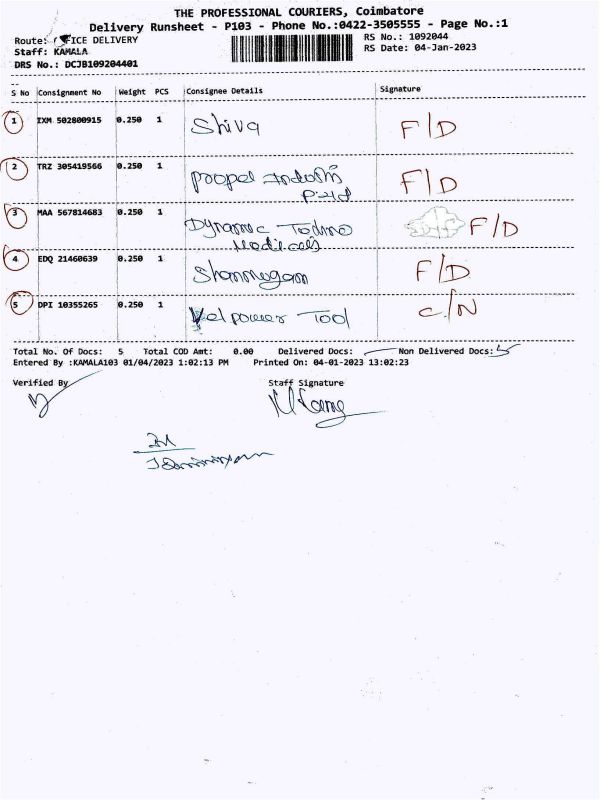 THE PROFESSIONAL COURIERS, Coimbatore
Delivery Runsheet - P103 - Phone No.:0422-3505555 - Page No.:1
Route: ICE DELIVERY
RS No.: 1092044
Staff: KAMALA
RS Date: 04-Jan-2023
DRS No.: DCJB109204401
S No Consignment No Weight PCS Consignee Details Signature
1 IXM 502800915 0.250 1 Shiva F/D
2 TRZ 305419566 0.250 1 Propel F/D
3 MAA 567814683 0.250 1 Dynamic F/D
Medicals
4 EDQ 21460639 0.250 1 Shanmugam F/D
5 DPI 10355265 0.250 1 Vel power Tool C/N
Total No. Of Docs: 5 Total COD Amt: 0.00 Delivered Docs: — Non Delivered Docs: 5
Entered By :KAMALA103 01/04/2023 1:02:13 PM Printed On: 04-01-2023 13:02:23
Verified By Staff Signature